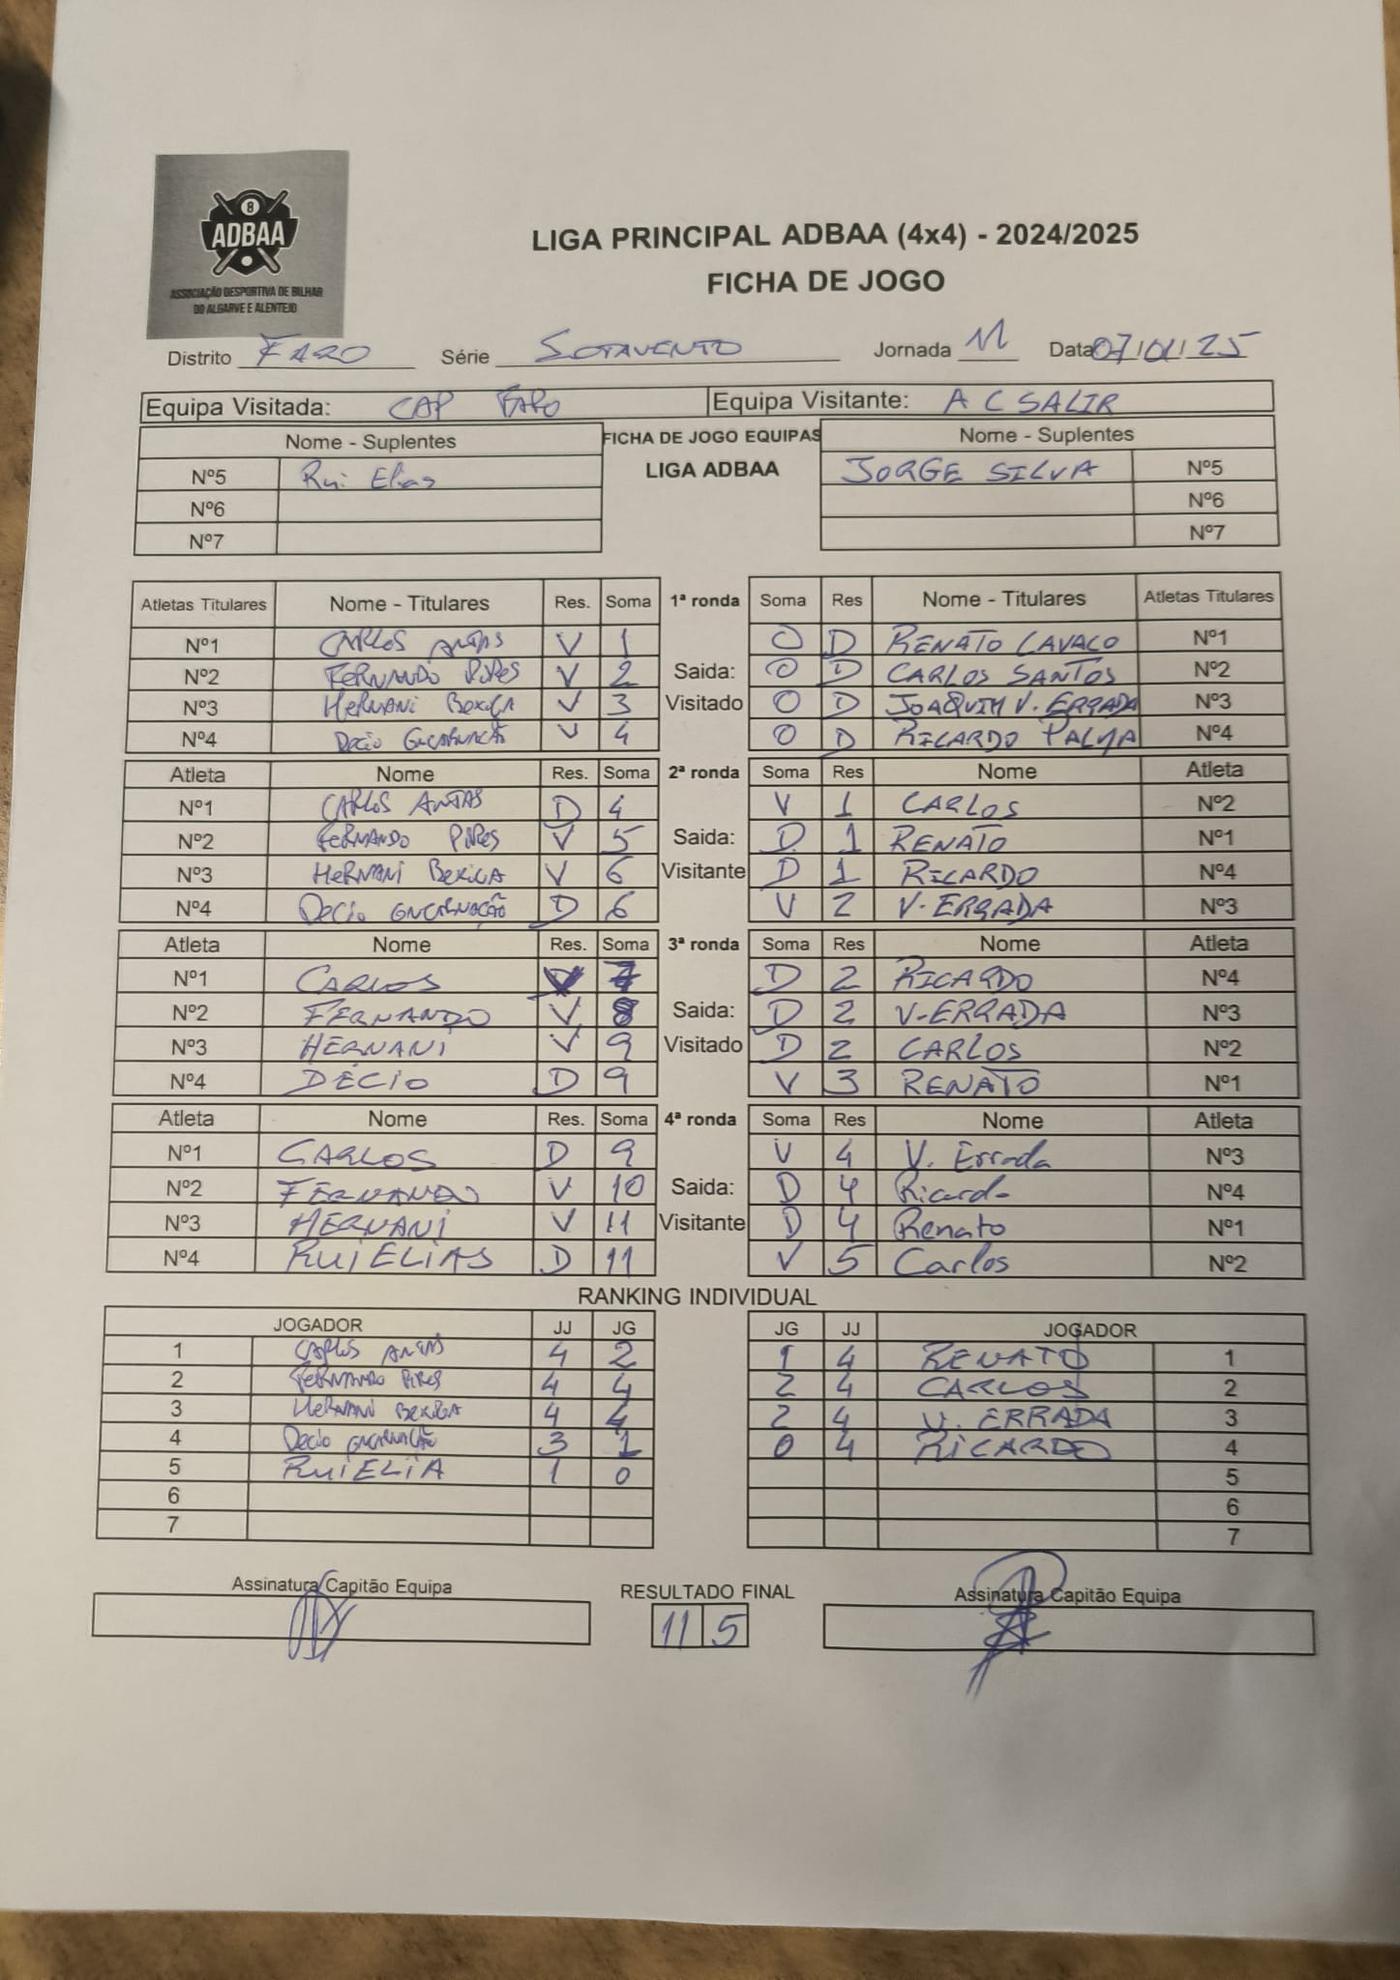 8
ADBAA
ASSOCIAÇÃO DESPORTIVA DE BILHAR
DO ALGARVE E ALENTEJO
LIGA PRINCIPAL ADBAA (4x4) - 2024/2025
FICHA DE JOGO
Distrito FARO Série SOTAVENTO Jornada 11 Data 07/01/25
Equipa Visitada: CAP FARO Equipa Visitante: A C SALIR
Nome - Suplentes FICHA DE JOGO EQUIPAS Nome - Suplentes
Nº5 Rui Elias LIGA ADBAA JORGE SILVA Nº5
Nº6 Nº6
Nº7 Nº7
Atletas Titulares Nome - Titulares Res. Soma 1ª ronda Soma Res Nome - Titulares Atletas Titulares
Nº1 CARLOS ANTAS V 1 0 D RENATO CAVACO Nº1
Nº2 FERNANDO PIRES V 2 Saida: 0 D CARLOS SANTOS Nº2
Nº3 HERNANI BEXIGA V 3 Visitado 0 D JOAQUIM V. ERRADA Nº3
Nº4 Decio ENCARNAÇÃO V 4 0 D RICARDO PALMA Nº4
Atleta Nome Res. Soma 2ª ronda Soma Res Nome Atleta
Nº1 CARLOS ANTAS D 4 V 1 CARLOS Nº2
Nº2 FERNANDO PIRES V 5 Saida: D 1 RENATO Nº1
Nº3 HERNANI BEXIGA V 6 Visitante D 1 RICARDO Nº4
Nº4 Decio ENCARNAÇÃO D 6 V 2 V. ERRADA Nº3
Atleta Nome Res. Soma 3ª ronda Soma Res Nome Atleta
Nº1 CARLOS V 7 D 2 RICARDO Nº4
Nº2 FERNANDO V 8 Saida: D 2 V-ERRADA Nº3
Nº3 HERNANI V 9 Visitado D 2 CARLOS Nº2
Nº4 DÉCIO D 9 V 3 RENATO Nº1
Atleta Nome Res. Soma 4ª ronda Soma Res Nome Atleta
Nº1 CARLOS D 9 V 4 V. Errada Nº3
Nº2 FERNANDO V 10 Saida: D 4 Ricardo Nº4
Nº3 HERNANI V 11 Visitante D 4 Renato Nº1
Nº4 RUI ELIAS D 11 V 5 Carlos Nº2
RANKING INDIVIDUAL
JOGADOR JJ JG JG JJ JOGADOR
1 CARLOS ANTAS 4 2 1 4 RENATO 1
2 FERNANDO PIRES 4 4 2 4 CARLOS 2
3 HERNANI BEXIGA 4 4 2 4 V. ERRADA 3
4 Decio ENCARNAÇÃO 3 1 0 4 RICARDO 4
5 RUI ELIA 1 0 5
6 6
7 7
Assinatura Capitão Equipa RESULTADO FINAL Assinatura Capitão Equipa
11 5